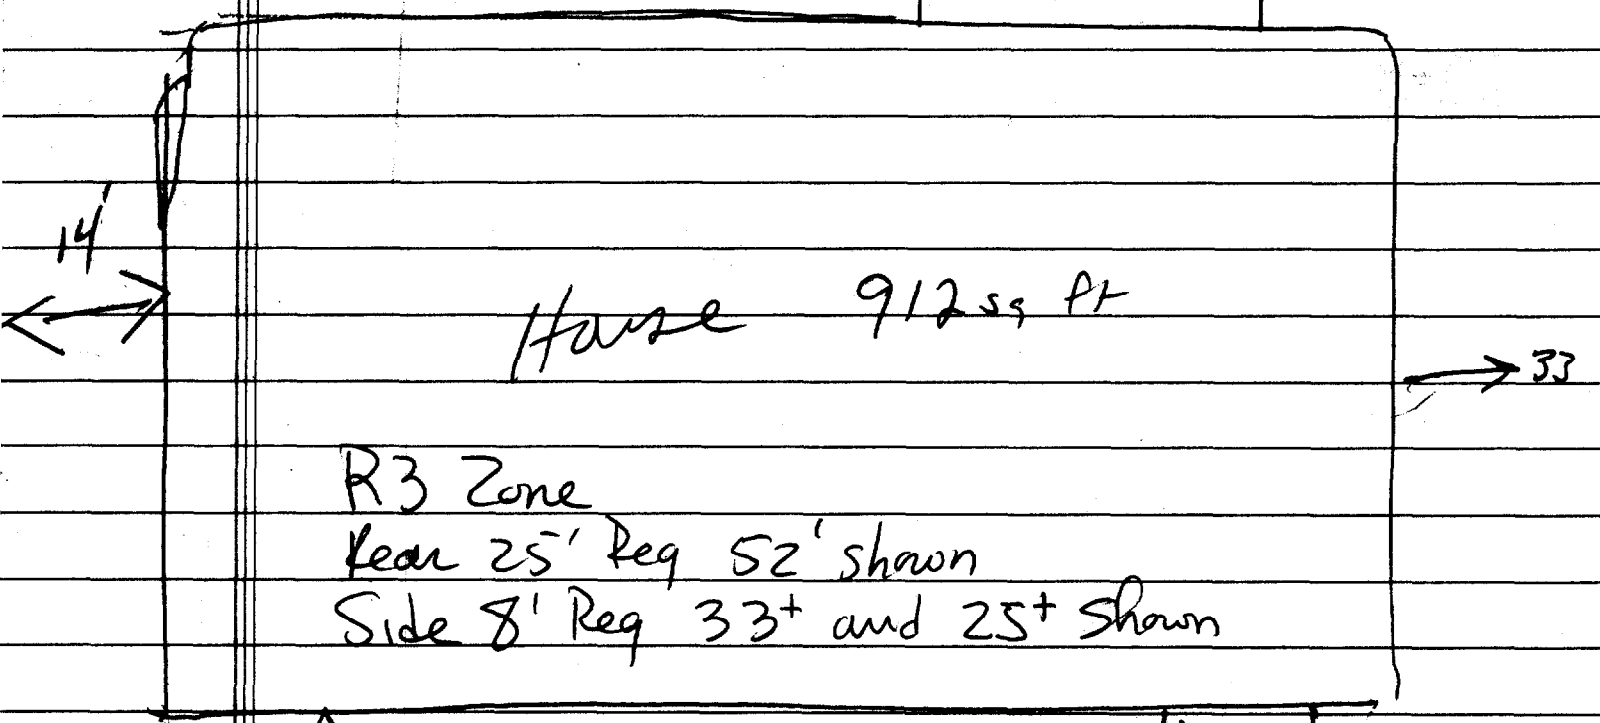 14'
House 912 sq ft
33
R3 Zone
Rear 25' Req 52' shown
Side 8' Req 33+ and 25+ Shown